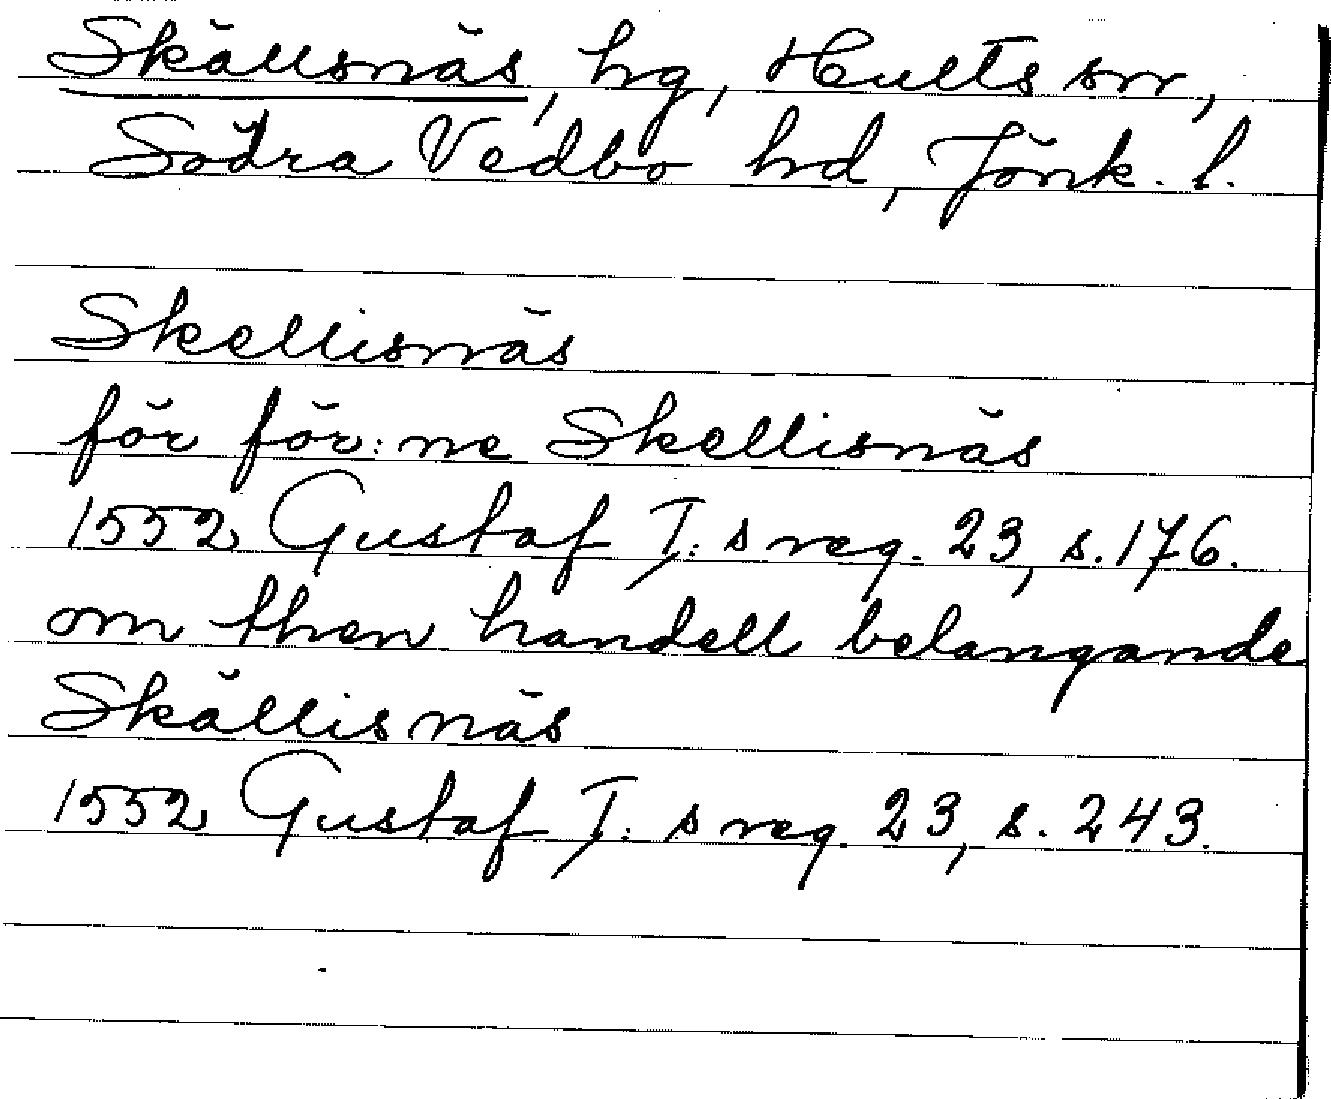 Skällsnäs, hg, Hults sn,
Södra Vedbo hd, Jönk. l.
Skellisnäs
för för:ne Skellisnäs
1552 Gustaf I:s reg. 23, s. 176.
om then handell belangande
Skällisnäs
1552 Gustaf I:s reg. 23, s. 243.